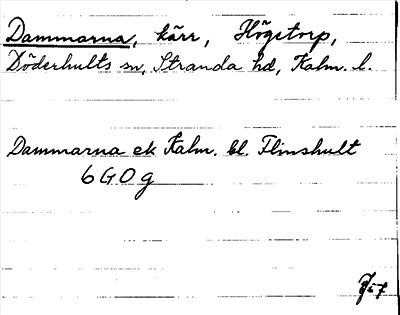 Dammarna, kärr, Högstorp,
Döderhults sn, Stranda hd, Kalm. l.
Dammarna ek Kalm. bl. Flinshult
6 G 0 g